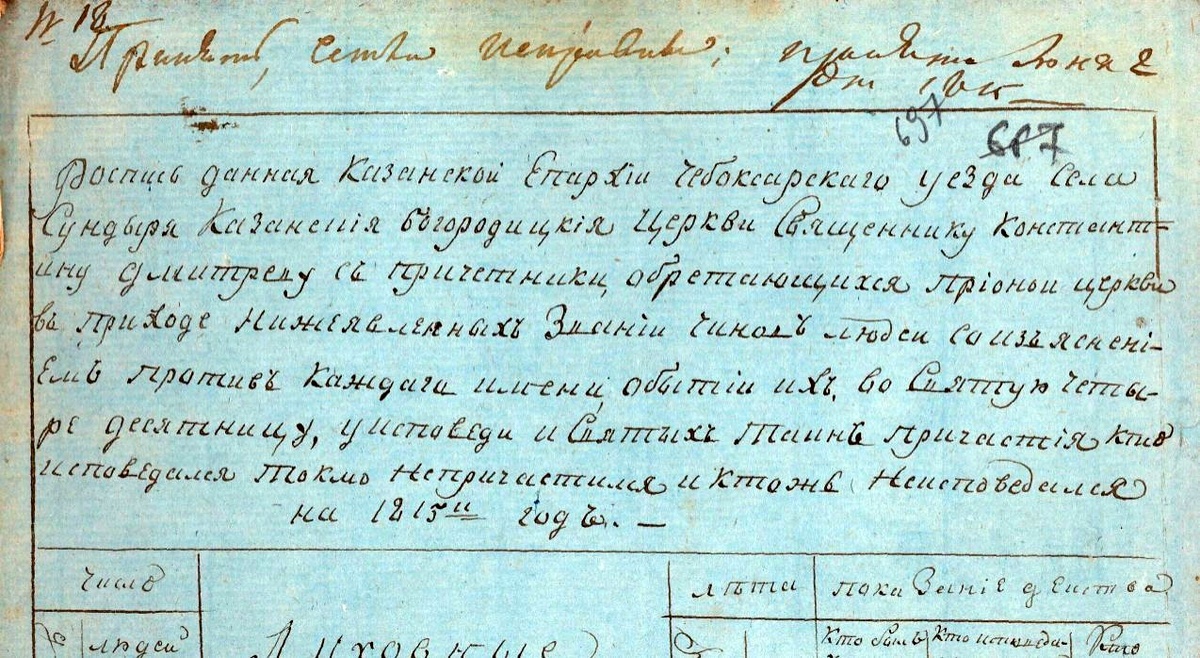 № 18.
Принять, исправны; приняты Июня 2
дня 1815
697
617
Роспись данная Казанской Епархіи Чебоксарскаго уезда Села
Сундыря Казанскія Богородицкія Церкви Священнику Констант=
ину Дмитреву съ причетники, обретающихся прионой церкви
въ приходе нижеявленныхъ Званіи чиновъ людеи со изъяснені-
Емъ противъ каждаго имени, обытіи ихъ, во Святую четы-
ре десятницу, у исповеди и Святыхъ Таинъ причастія кто
исповедался токмо непричастился и ктоже Неисповедался
на 1815и годъ. —
Число
лѣта
показаніе действа
людей
Духовные
Кто былъ
Кто исповеди-